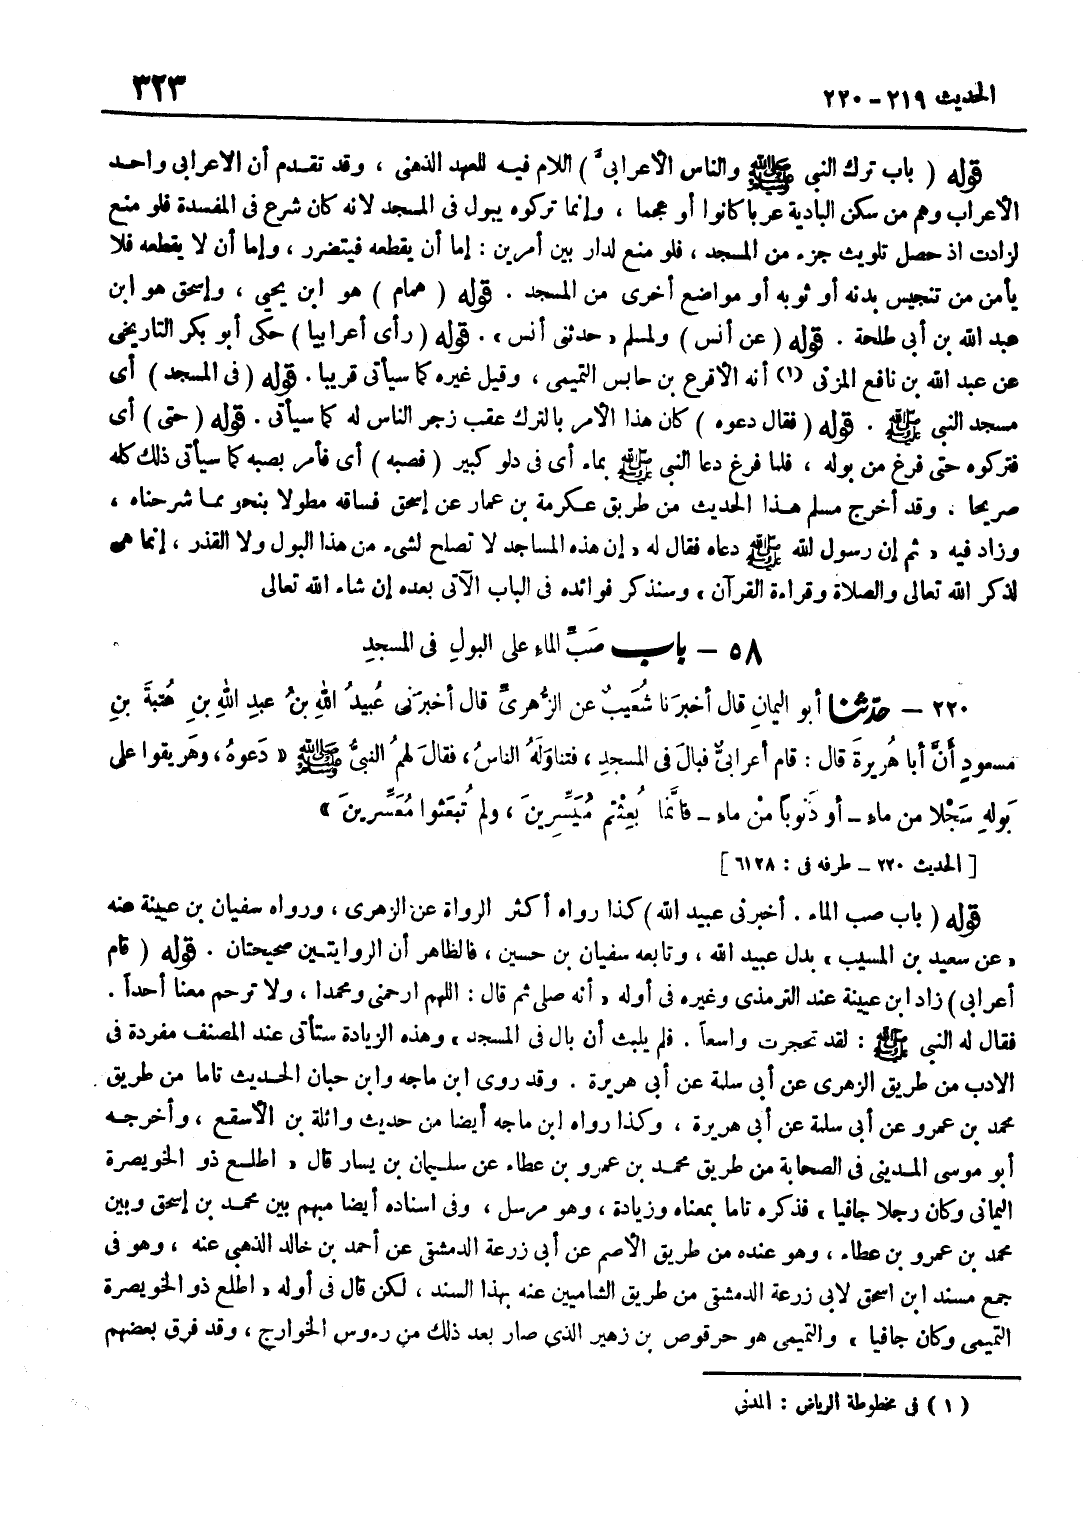 الحديث ٢١٩ - ٢٢٠
٣٢٣
قوله ( باب ترك النبي ﷺ والناس الأعرابىَّ ) اللام فيه للعهد الذهنى ، وقد تقدم أن الاعرابى واحد
الأعراب وهم من سكن البادية عربا كانوا أو عجما ، وإنما تركوه يبول فى المسجد لانه كان شرع فى المفسدة فلو منع
لزادت اذ حصل تلويث جزء من المسجد ، فلو منع لدار بين أمرين : إما أن يقطعه فيتضرر ، وإما أن لا يقطعه فلا
يأمن من تنجيس بدنه أو ثوبه أو مواضع أخرى من المسجد . قوله ( همام ) هو ابن يحيى ، وإسحق هو ابن
عبد الله بن أبى طلحة . قوله ( عن أنس ) ولمسلم « حدثنى أنس » . قوله ( رأى أعرابيا ) حكى أبو بكر التاريخى
عن عبد الله بن نافع المزنى (١) أنه الأقرع بن حابس التميمى ، وقيل غيره كما سيأتى قريبا . قوله ( فى المسجد ) أى
مسجد النبى ﷺ . قوله ( فقال دعوه ) كان هذا الأمر بالترك عقب زجر الناس له كما سيأتى . قوله ( حتى ) أى
فتركوه حتى فرغ من بوله ، فلما فرغ دعا النبى ﷺ بماء أى فى دلو كبير ( فصبه ) أى فأمر بصبه كما سيأتى ذلك كله
صريحا . وقد أخرج مسلم هذا الحديث من طريق عكرمة بن عمار عن إسحق فساقه مطولا بنحو مما شرحناه ،
وزاد فيه « ثم إن رسول لله ﷺ دعاه فقال له « إن هذه المساجد لا تصلح لشىء من هذا البول ولا القذر ، إنما هى
لذكر الله تعالى والصلاة وقراءة القرآن » وسنذكر فوائده فى الباب الآتى بعده إن شاء الله تعالى
٥٨ - باب صَبِّ الماءِ على البولِ فى المسجدِ
٢٢٠ - حدّثنا أبو اليمانِ قال أخبرَنا شُعَيبٌ عن الزُّهرىِّ قال أخبرَنى عُبيدُ اللهِ بنُ عبدِ اللهِ بنِ عُتبةَ بنِ
مسعودٍ أنَّ أبا هُريرةَ قال : قام أعرابىٌّ فبالَ فى المسجدِ ، فتناوَلَهُ الناسُ ، فقالَ لهمُ النبىُّ ﷺ « دَعوهُ ، وهَريقوا على
بَولهِ سَجْلا من ماءٍ - أو ذَنوباً منْ ماءٍ - فانَّما بُعِثْتم مُيَسِّرينَ ، ولم تُبعَثوا مُعَسِّرينَ »
[ الحديث ٢٢٠ - طرفه فى : ٦١٢٨ ]
قوله ( باب صب الماء . أخبرنى عبيد الله ) كذا رواه أكثر الرواة عن الزهرى ، ورواه سفيان بن عيينة عنه
« عن سعيد بن المسيب » بدل عبيد الله ، وتابعه سفيان بن حسين ، فالظاهر أن الروايتين صحيحتان . قوله ( قام
أعرابى ) زاد ابن عيينة عند الترمذى وغيره فى أوله « أنه صلى ثم قال : اللهم ارحمنى ومحمدا ، ولا ترحم معنا أحداً .
فقال له النبى ﷺ : لقد تحجرت واسعاً . فلم يلبث أن بال فى المسجد » وهذه الزيادة ستأتى عند المصنف مفردة فى
الادب من طريق الزهرى عن أبى سلمة عن أبى هريرة . وقد روى ابن ماجه وابن حبان الحديث تاما من طريق
محمد بن عمرو عن أبى سلمة عن أبى هريرة ، وكذا رواه ابن ماجه أيضا من حديث واثلة بن الأسقع ، وأخرجه
أبو موسى المدينى فى الصحابة من طريق محمد بن عمرو بن عطاء عن سليمان بن يسار قال « اطلع ذو الخويصرة
اليمانى وكان رجلا جافيا » فذكره تاما بمعناه وزيادة ، وهو مرسل ، وفى اسناده أيضا مبهم بين محمد بن إسحق وبين
محمد بن عمرو بن عطاء ، وهو عنده من طريق الأصم عن أبى زرعة الدمشقى عن أحمد بن خالد الذهبى عنه ، وهو فى
جمع مسند ابن اسحق لابى زرعة الدمشقى من طريق الشاميين عنه بهذا السند ، لكن قال فى أوله « اطلع ذو الخويصرة
التميمى وكان جافيا » والتميمى هو حرقوص بن زهير الذى صار بعد ذلك من رءوس الخوارج ، وقد فرق بعضهم
(١) فى مخطوطة الرياض : المدنى